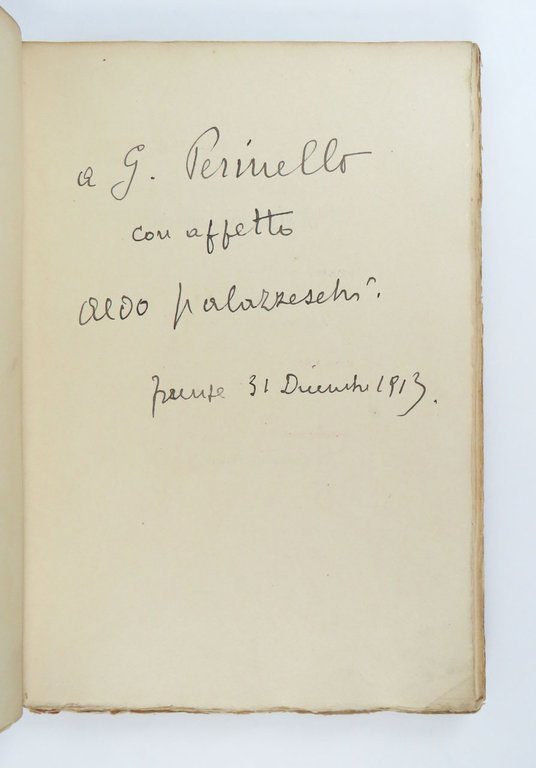 a G. Perinello
con affetto
Aldo Palazzeschi.
Firenze 31 Dicembre 1913.